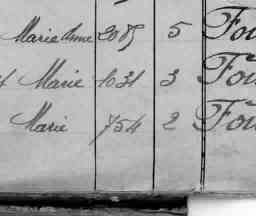 Marie Anne 2085 5 Fou
Marie 1031 3 Fou
Marie 754 2 Fou